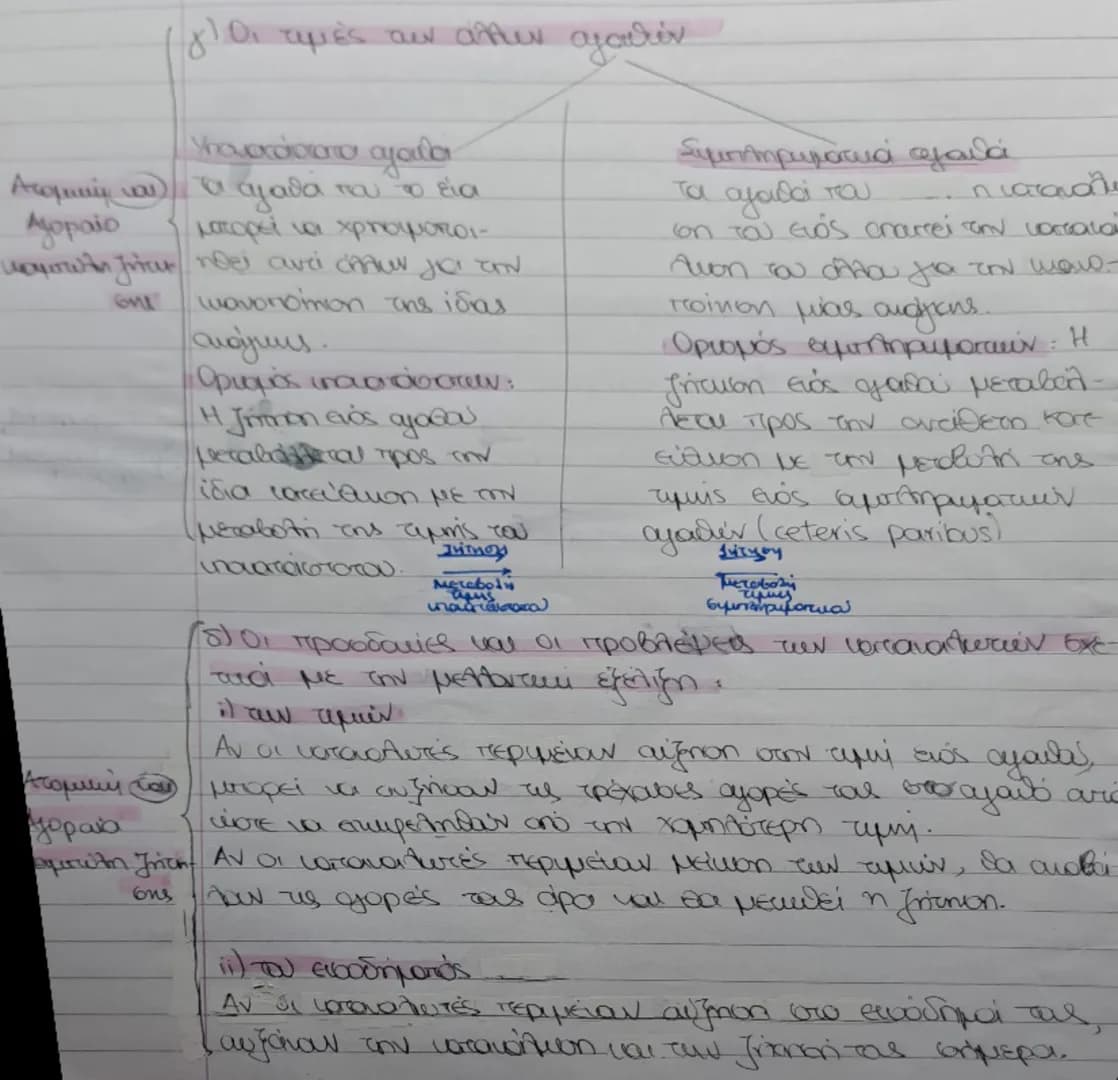 γ) Οι τιμές των άλλων αγαθών
Υποκατάστατα αγαθά
Τα αγαθά που το ένα
μπορεί να χρησιμοποι-
ηθεί αντί άλλων για την
ικανοποίηση της ίδιας
ανάγκης.
Ορισμός υποκατάστατων:
Η ζήτηση ενός αγαθού
μεταβάλλεται προς την
ίδια κατεύθυνση με την
μεταβολή της τιμής του
υποκατάστατου.
Ζήτηση
Μεταβολή
τιμής
υποκατάστατου
Συμπληρωματικά αγαθά
Τα αγαθά που ... η κατανάλω
ση του ενός απαιτεί την κατανά
λωση του άλλου για την ικανο-
ποίηση μίας ανάγκης.
Ορισμός συμπληρωματικών: Η
ζήτηση ενός αγαθού μεταβάλ-
λεται προς την αντίθετη κατ
εύθυνση με την μεταβολή της
τιμής ενός συμπληρωματικών
αγαθών (ceteris paribus)
Ζήτηση
Μεταβολή
τιμής
συμπληρωματικού
Ατομική και
Αγοραία
καμπύλη ζήτη
σης
δ) Οι προσδοκίες και οι προβλέψεις των καταναλωτών σχε
τικά με την μελλοντική εξέλιξη:
i) των τιμών
Αν οι καταναλωτές περιμένουν αύξηση στην τιμή ενός αγαθού,
μπορεί να αυξήσουν τις τρέχουσες αγορές τους στο αγαθό αυτό
ώστε να επωφεληθούν από την χαμηλότερη τιμή.
Αν οι καταναλωτές περιμένουν μείωση των τιμών, θα αναβά
λουν τις αγορές τους άρα και θα μειωθεί η ζήτηση.
ii) του εισοδήματός
Αν οι καταναλωτές περιμένουν αύξηση στο εισόδημά τους,
αυξάνουν την κατανάλωση και των ζήτησή τους σήμερα.
Ατομική και
Αγοραία
καμπύλη ζήτη
σης